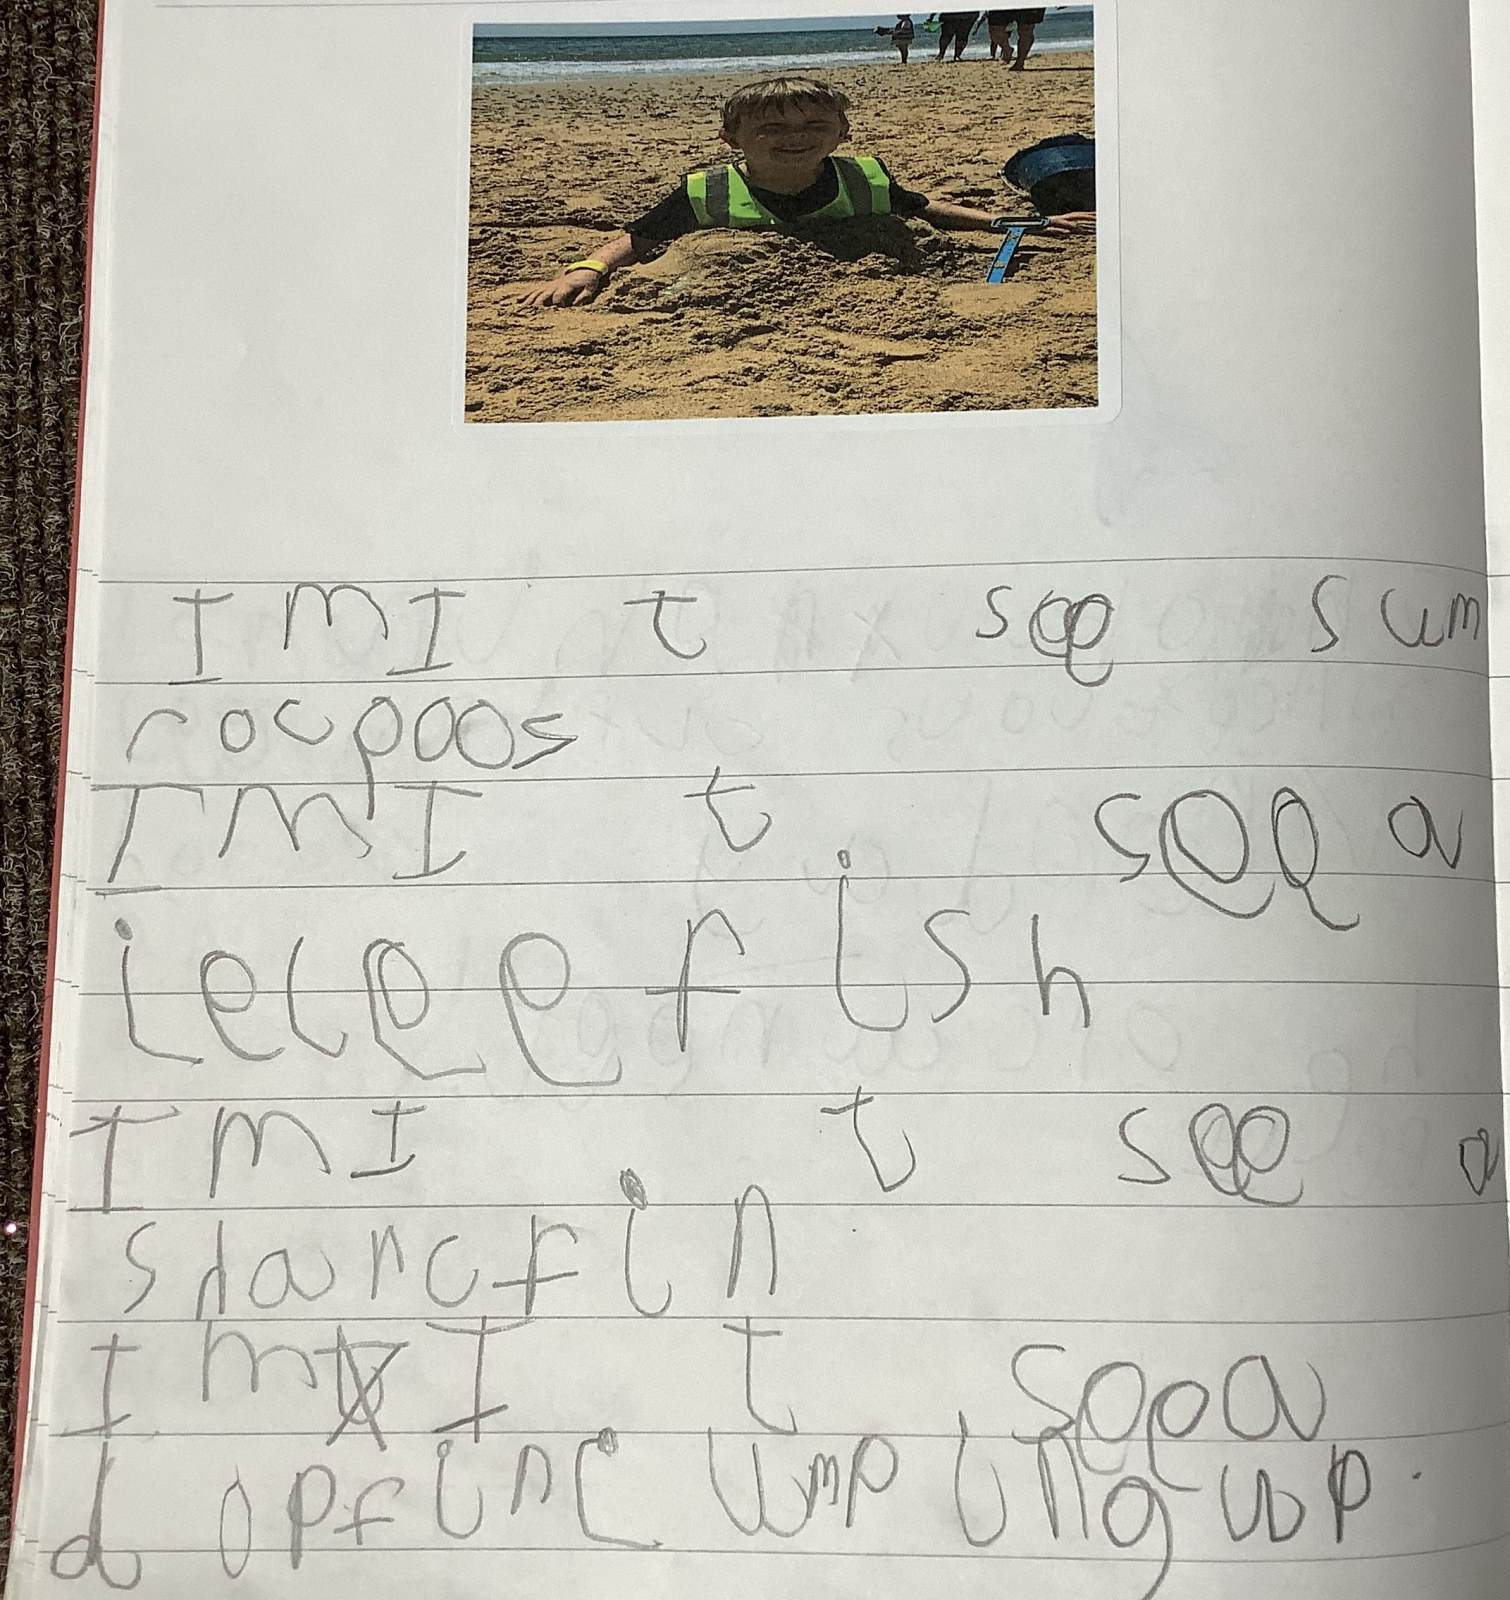 I mI t see sum
rocpoos
I mI t see a
jeleefish
I mI t see a
sharcfin
I m I t see a
dopfin jumping up.